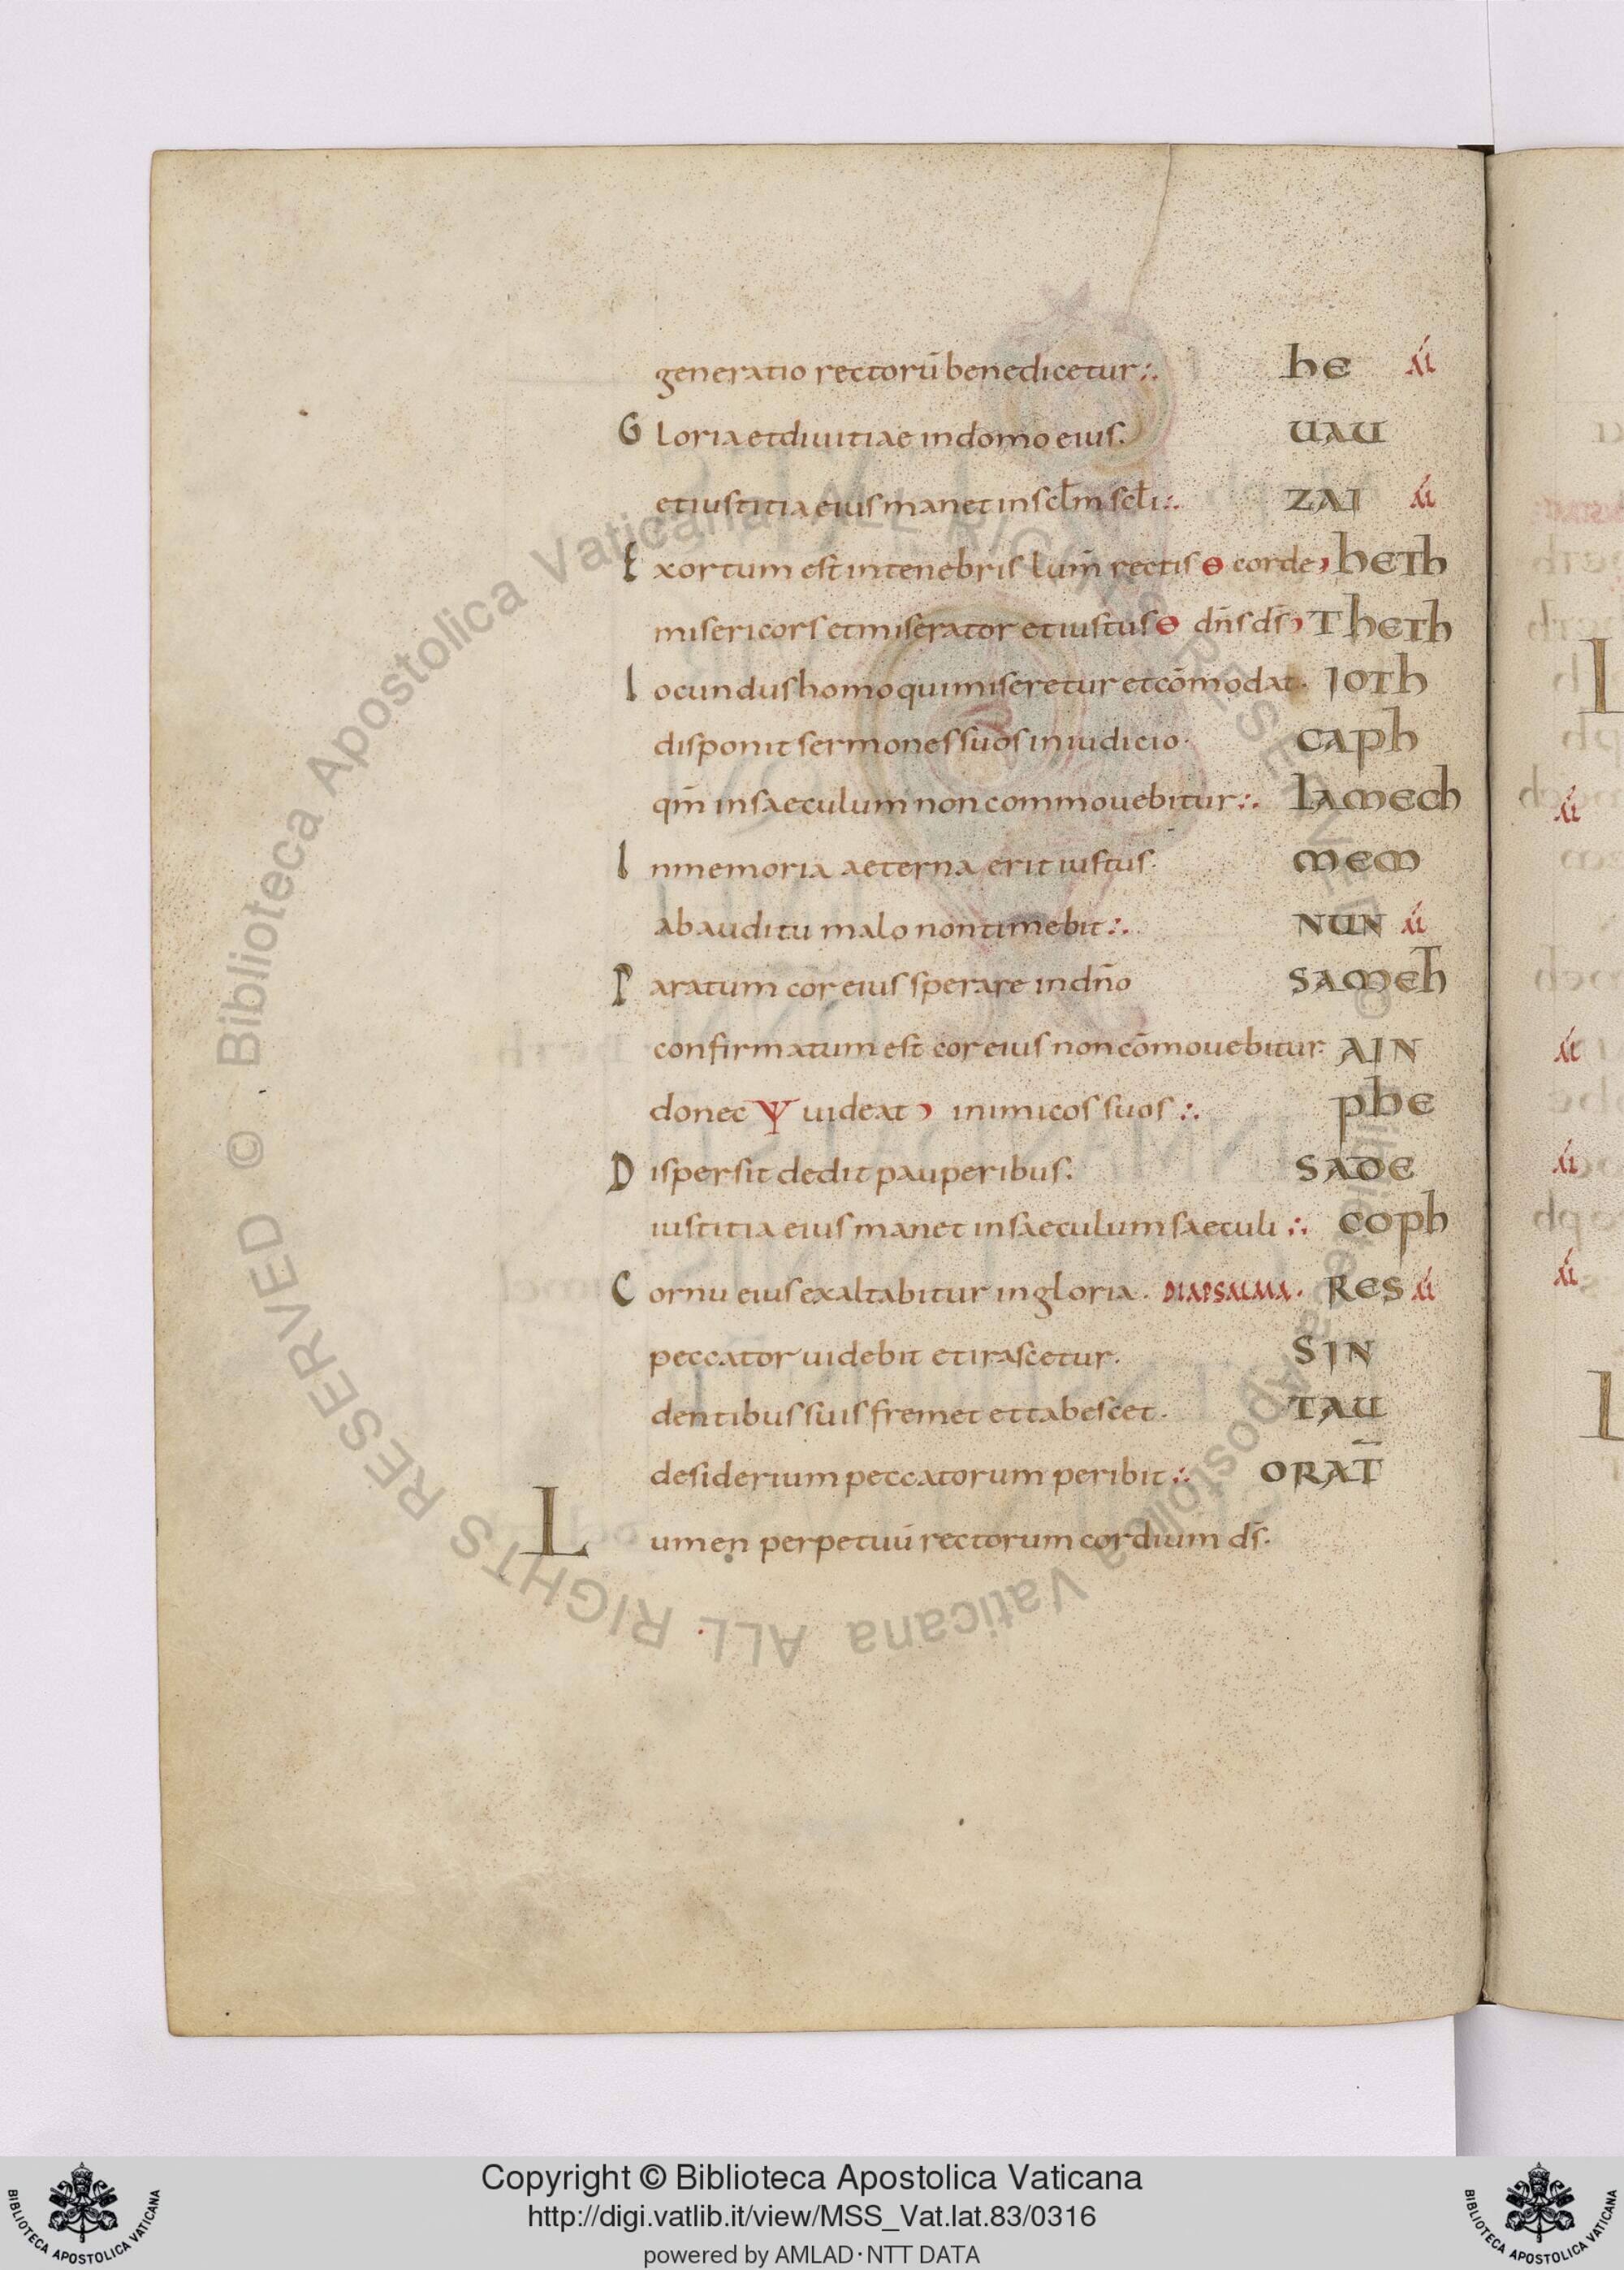 generatio rectorū benedicetur:. he
Gloria et diuitiae in domo eius. uau
et iustitia eius manet in sclm scli:. zai
Exortum est intenebris lum̄ rectis Θ corde, heth
misericors et miserator et iustus Θ dn̄s ds̄, Theth
Iocundus homo qui miseretur et cōmodat. Ioth
disponit sermones suos in iudicio. caph
qm̄ in saeculum non commouebitur:. lamech
Inmemoria aeterna erit iustus. mem
ab auditu malo non timebit:. nun
Paratum cor eius sperare in dn̄o sameth
confirmatum est cor eius non cōmouebitur. AIN
donec Ψ uideat, inimicos suos:. phe
Dispersit dedit pauperibus. SADE
iustitia eius manet in saeculum saeculi:. coph
Cornu eius exaltabitur in gloria. DIAPSALMA. RES
peccator uidebit et irascetur. SIN
dentibus suis fremet et tabescet. TAU
desiderium peccatorum peribit:. ORAT̄
Lumen perpetuū rectorum cordium ds̄.
© Biblioteca Apostolica Vaticana ALL RIGHTS RESERVED © Biblioteca Apostolica Vaticana ALL RIGHTS RESERVED
BIBLIOTECA APOSTOLICA VATICANA
Copyright © Biblioteca Apostolica Vaticana
http://digi.vatlib.it/view/MSS_Vat.lat.83/0316
powered by AMLAD·NTT DATA
BIBLIOTECA APOSTOLICA VATICANA